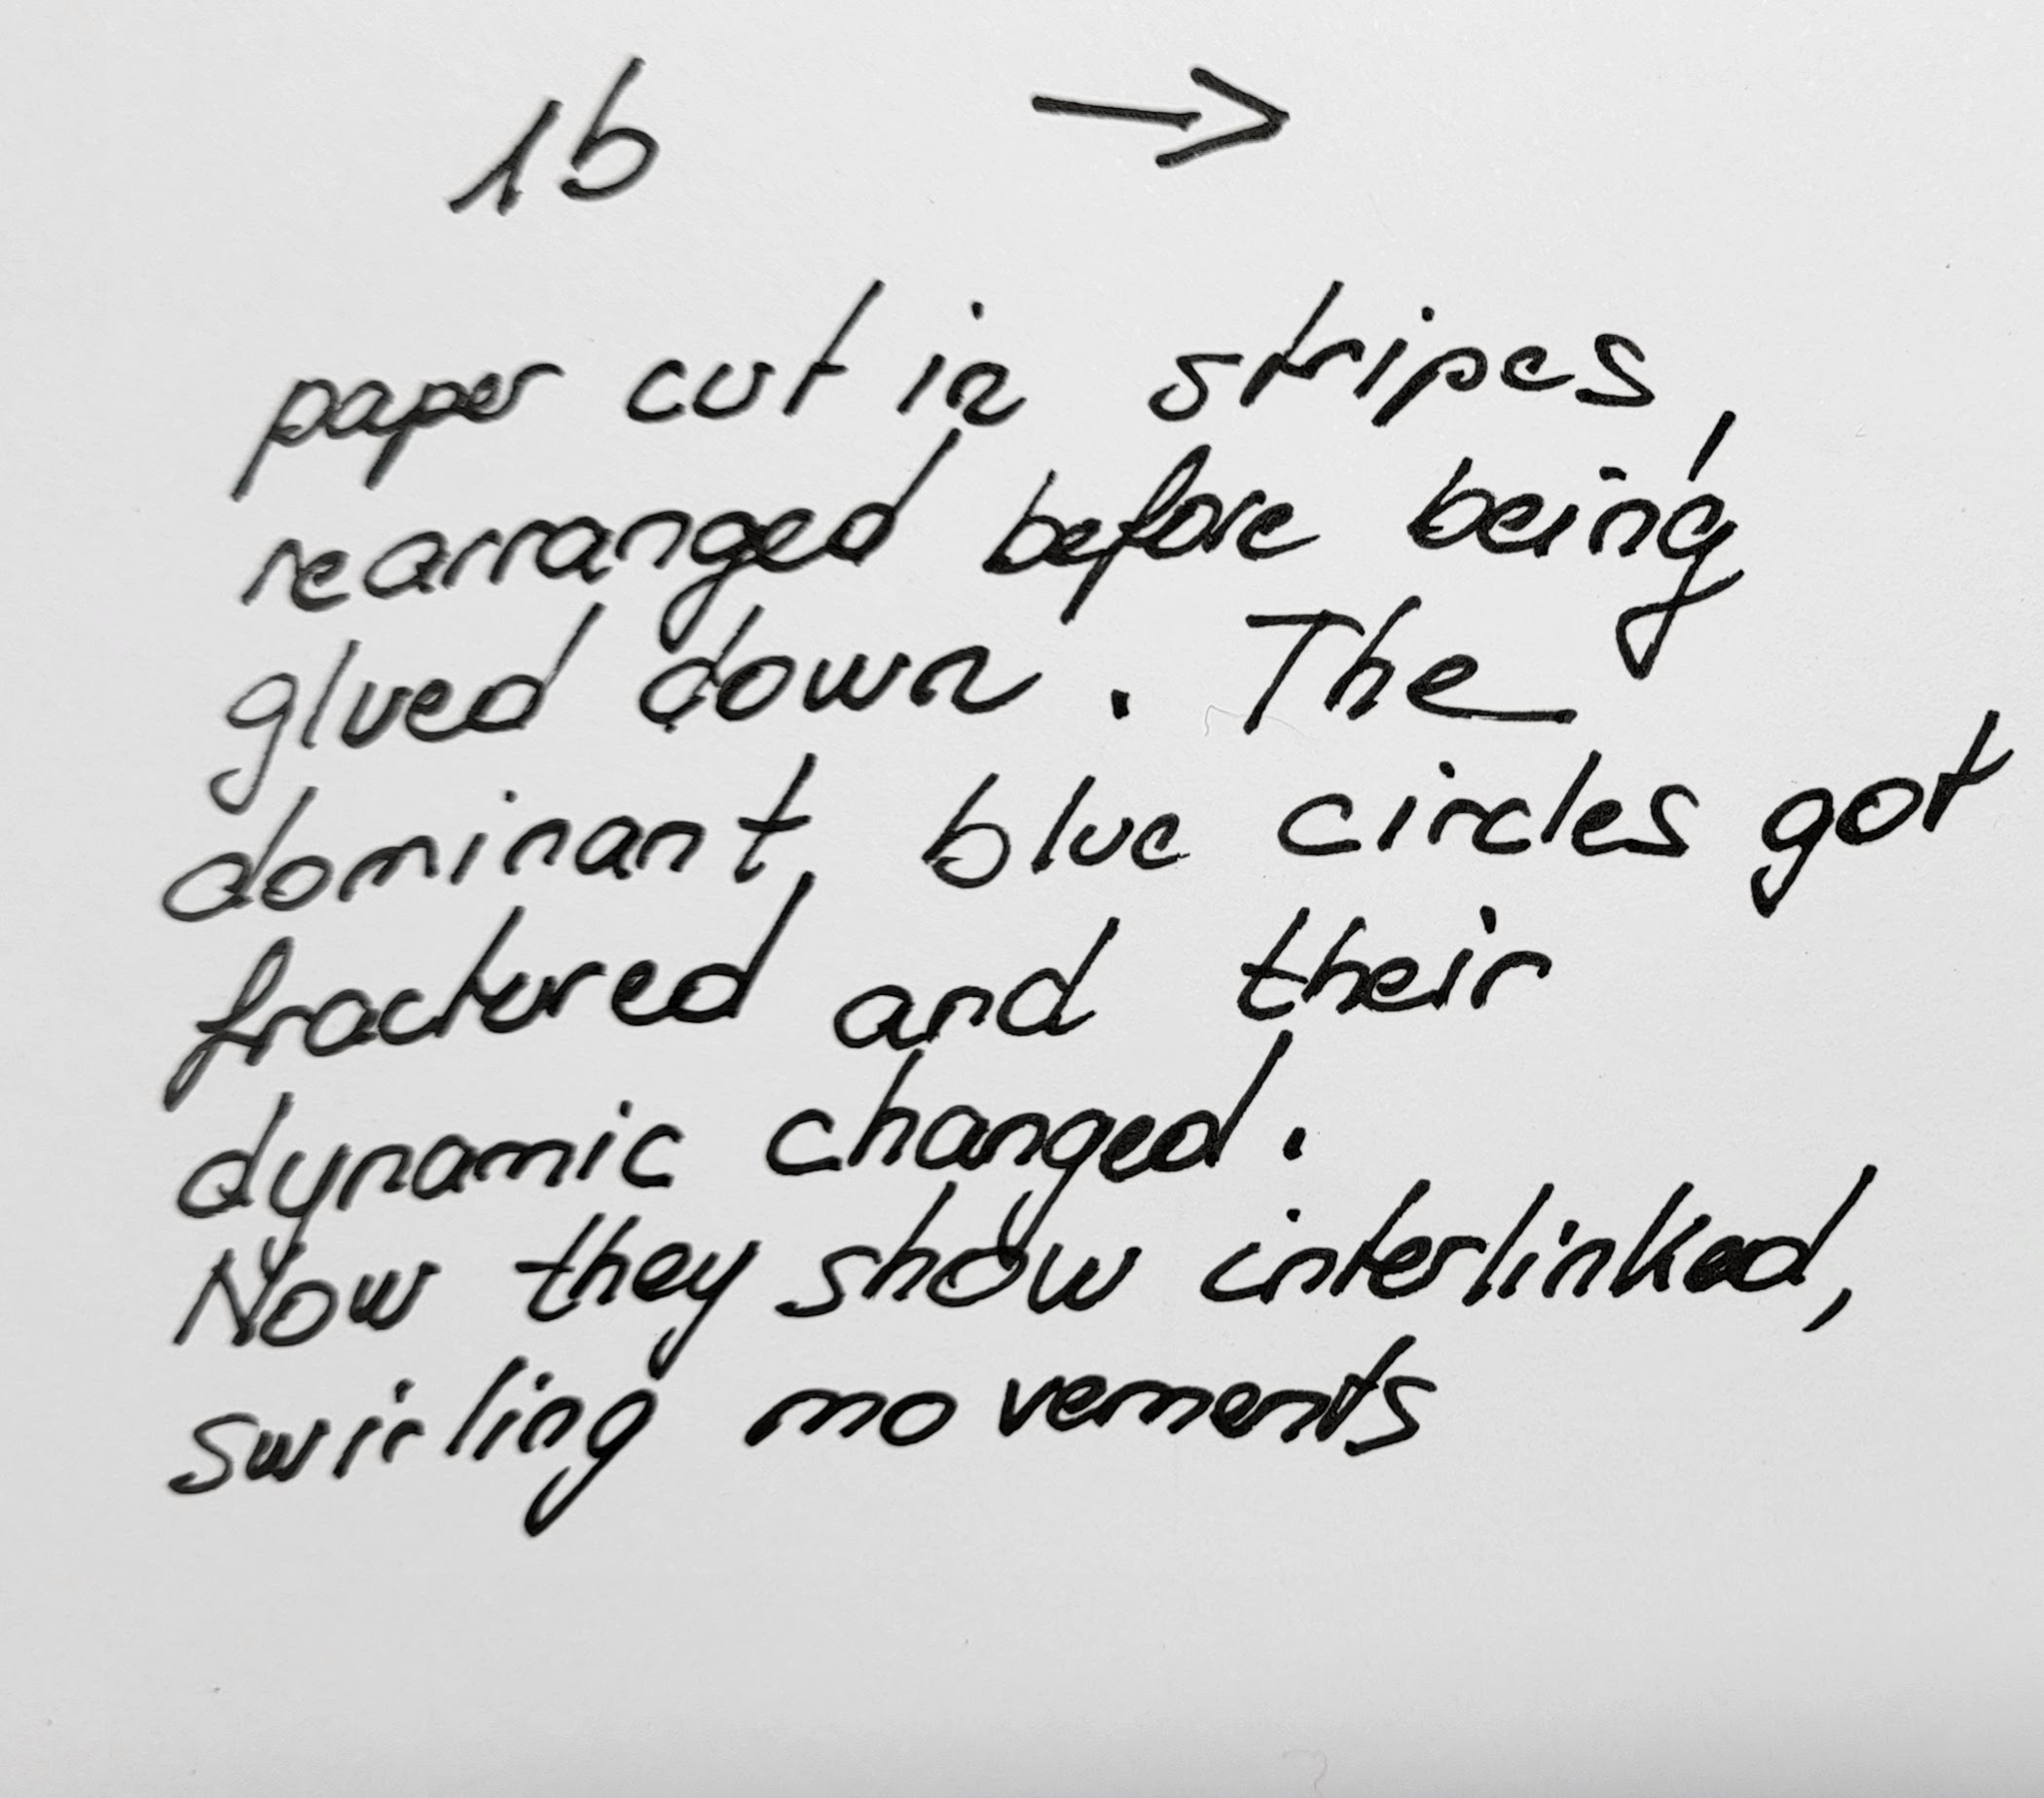 1b →
paper cut in stripes,
rearranged before being
glued down. The
dominant blue circles got
fractured and their
dynamic changed.
Now they show interlinked,
swirling movements